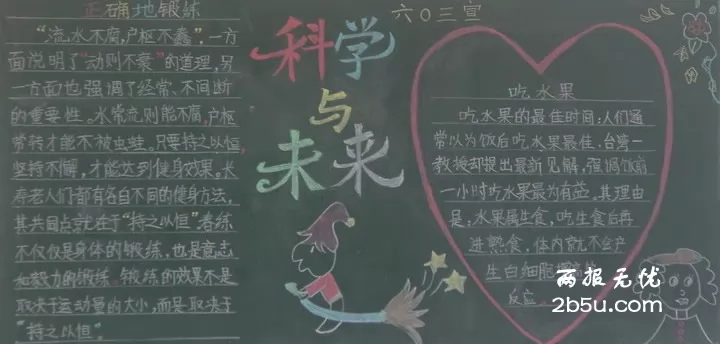 正确地锻练
"流水不腐,户枢不蠹",一方
面说明了"动则不衰"的道理,另
一方面也强调了经常、不间断
的重要性。水常流则能不腐,户枢
常转才能不被虫蛀。只要持之以恒,
坚持不懈,才能达到健身效果。长
寿老人们都有各自不同的健身方法,
其共同点就在于"持之以恒"。春练
不仅仅是身体的锻练,也是意志
和毅力的锻练。锻练的效果不是
取决于运动量的大小,而是取决于
"持之以恒"。
科学
与
未来
六〇三宣
吃水果
吃水果的最佳时间:人们通
常以为饭后吃水果最佳,台湾一
教授却提出最新见解,强调饭前
一小时吃水果最为有益。其理由
是:水果属生食,吃生食后再
进熟食,体内就不会产
生白细胞
反应
两报无忧
2b5u.com